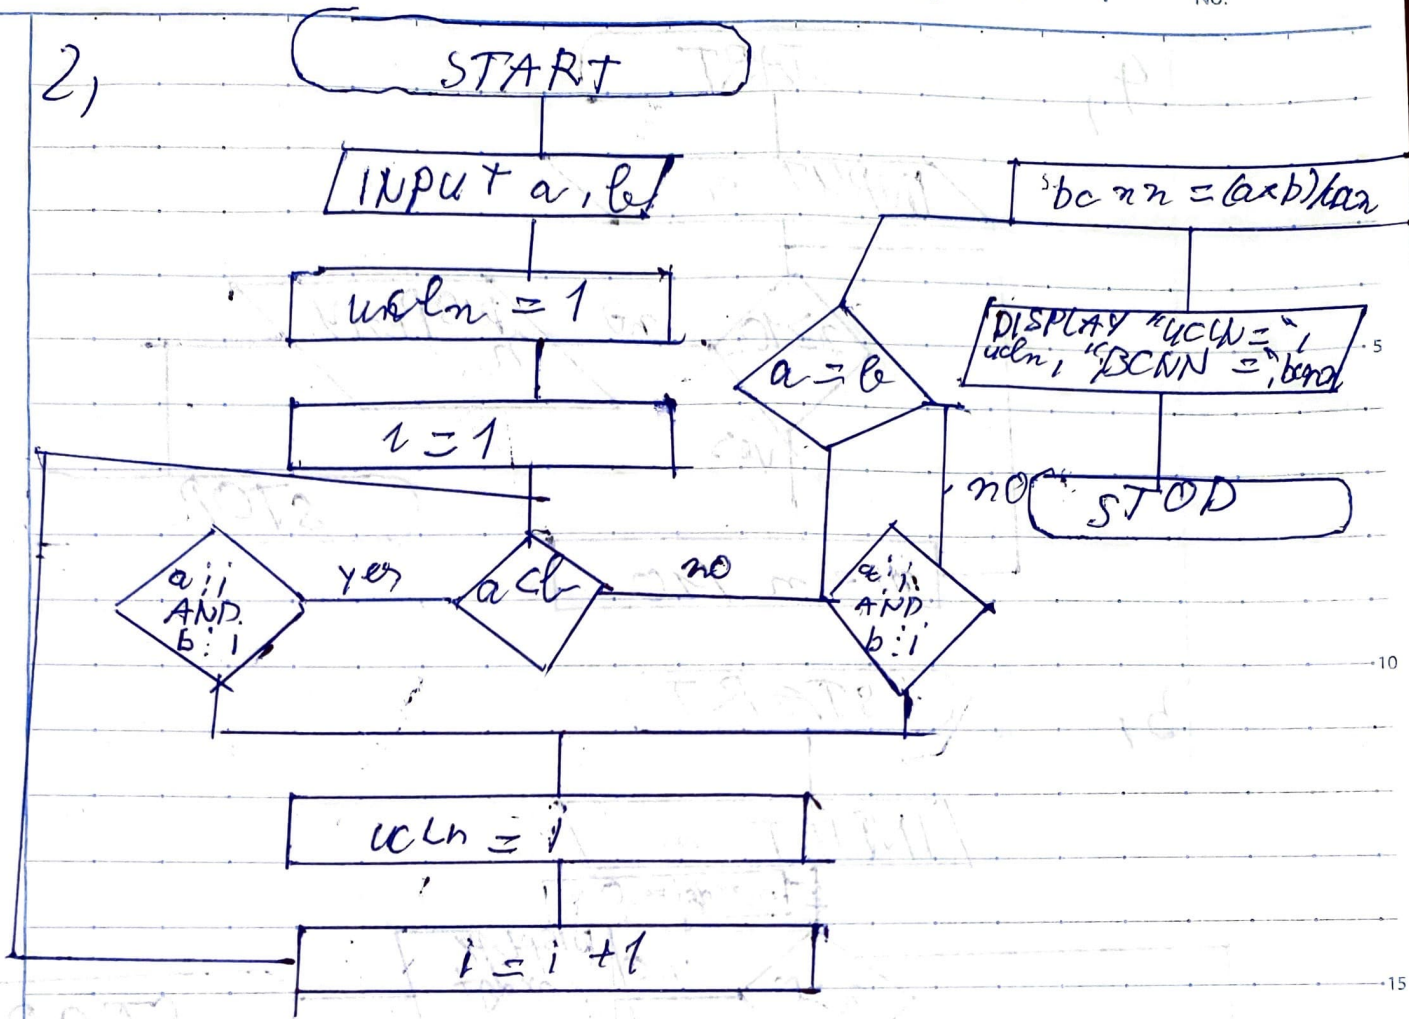 No.
2,
START
INPUT a, b
ucln = 1
i = 1
a < b
yes
no
a ⋮ i
AND
b ⋮ i
a ⋮ i
AND
b ⋮ i
a = b
no
bcnn = (a×b)/
DISPLAY "UCLN = ",
ucln, "BCNN = ", bcnn
STOP
ucln = i
i = i + 1
5
10
15